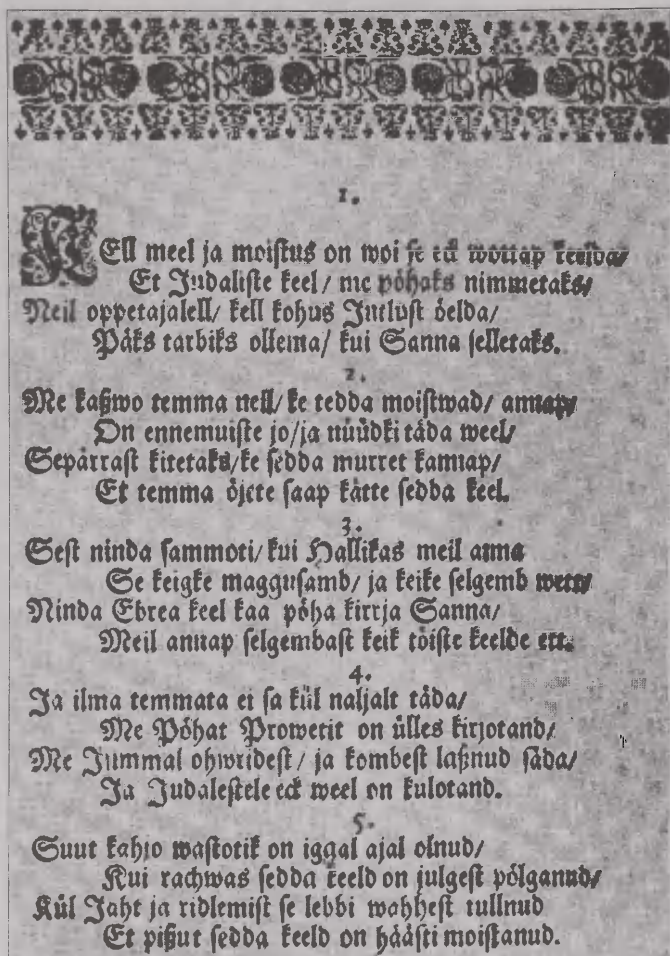 1.
KEll meel ja moistus on woi se eck wottap keelda/
Et Judaliste keel/ me pöhaks nimmetaks/
Neil oppetajalell/ kell kohus Jutlust öelda/
Päks tarbiks ollema/ kui Sanna selletaks.
2.
Me kaßwo temma nell/ ke tedda moistwad/ annap/
On ennemuiste jo/ ja nüüdki täda weel/
Sepärrast kitetaks/ ke sedda murret kannap/
Et temma öjete saap kätte sedda keel.
3.
Sest ninda sammoti/ kui Hallikas meil anna
Se keigke maggusamb/ ja keike selgemb wett/
Ninda Ebrea keel kaa pöha kirrja Sanna/
Meil annap selgembast keik töiste keelde ett.
4.
Ja ilma temmata ei sa kül naljalt täda/
Me Pöhat Prowetit on ülles kirjotand/
Me Jummal ohwridest/ ja kombest laßnud säda/
Ja Judalestele eck weel on kulotand.
5.
Suut kahjo wastotik on iggal ajal olnud/
Kui rachwas sedda keeld on julgest pölganud/
Kül Jaht ja ridlemist se lebbi wahhest tullnud
Et pißut sedda keeld on häästi moistanud.